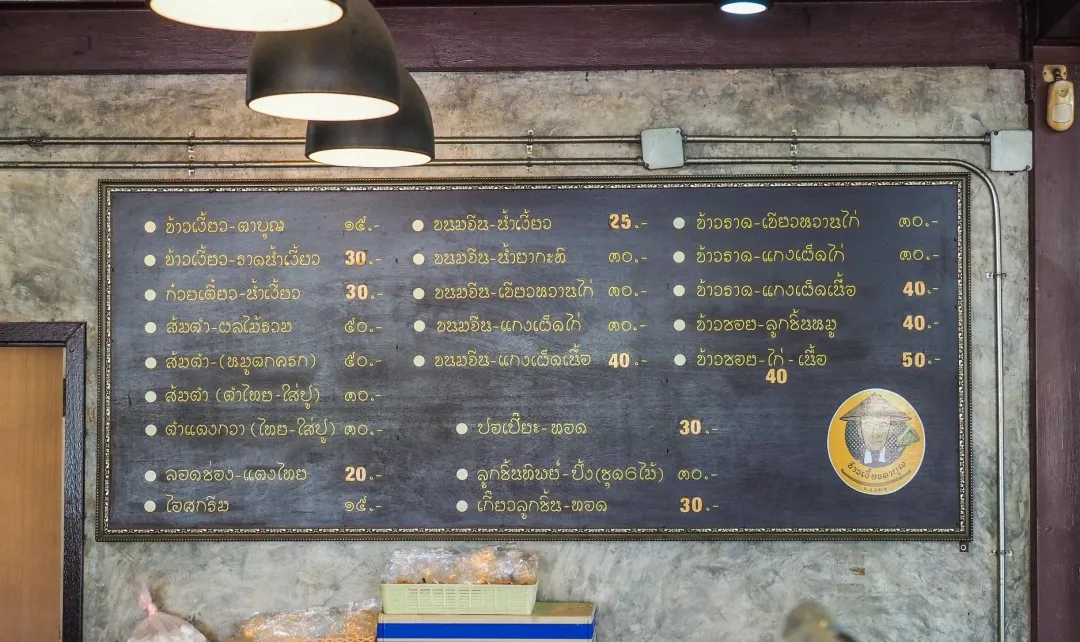 ข้าวเงี้ยว-ตาบุญ ๑๕.-
ข้าวเงี้ยว-ราดน้ำเงี้ยว 30.-
ก๋วยเตี๋ยว-น้ำเงี้ยว 30.-
ส้มตำ-ผลไม้รวม ๕๐.-
ส้มตำ-(หมูตกครก) ๕๐.-
ส้มตำ (ตำไทย-ใส่ปู) ๓๐.-
ตำแตงกวา (ไทย-ใส่ปู) ๓๐.-
ลอดช่อง-แตงไทย 20.-
ไอศกรีม ๑๕.-
ขนมจีน-น้ำเงี้ยว 25.-
ขนมจีน-น้ำยากะทิ ๓๐.-
ขนมจีน-เขียวหวานไก่ ๓๐.-
ขนมจีน-แกงเผ็ดไก่ ๓๐.-
ขนมจีน-แกงเผ็ดเนื้อ 40.-
ปอเปี๊ยะ-ทอด 30.-
ลูกชิ้นทิพย์-ปิ้ง(ชุด๖ไม้) ๓๐.-
เกี๊ยวลูกชิ้น-ทอด 30.-
ข้าวราด-เขียวหวานไก่ ๓๐.-
ข้าวราด-แกงเผ็ดไก่ ๓๐.-
ข้าวราด-แกงเผ็ดเนื้อ 40.-
ข้าวซอย-ลูกชิ้นหมู 40.-
ข้าวซอย-ไก่-เนื้อ 50.-
40
ข้าวเงี้ยวตาบุญ